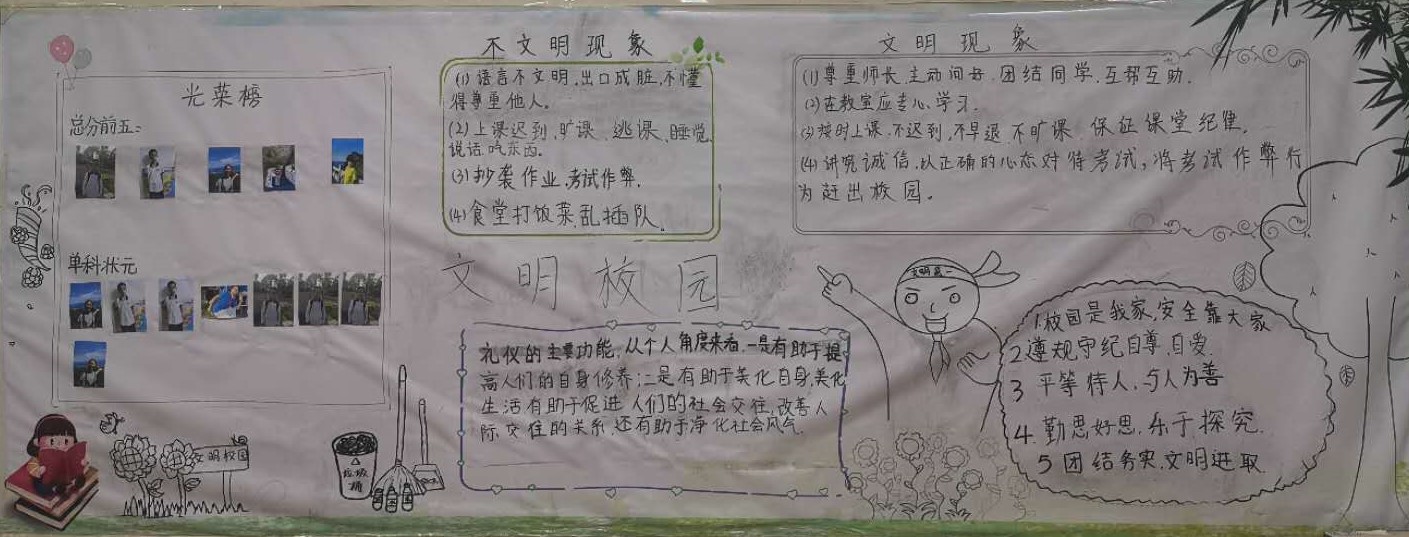 光荣榜
总分前五：
单科状元
文明校园
垃圾
桶
不文明现象
(1)语言不文明.出口成脏,不懂
得尊重他人。
(2)上课迟到、旷课、逃课、睡觉
说话.吃东西。
(3)抄袭作业.考试作弊.
(4)食堂打饭菜乱插队。
文明校园
礼仪的主要功能,从个人角度来看.一是有助于提
高人们的自身修养;二是有助于美化自身,美化
生活有助于促进人们的社会交往,改善人
际交往的关系.还有助于净化社会风气.
文明现象
(1)尊重师长.主动问好.团结同学.互帮互助.
(2)在教室应专心学习.
(3)按时上课.不迟到.不早退.不旷课.保证课堂纪律.
(4)讲究诚信.以正确的心态对待考试,将考试作弊行
为赶出校园。
1.校园是我家,安全靠大家
2.遵规守纪自尊.自爱
3 平等待人.与人为善
4.勤思好思.乐于探究.
5 团结务实.文明进取.